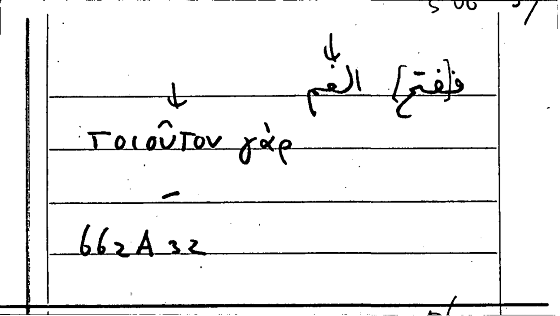 ↓
ف[فتح] الفم
↓
τοιοῦτον γὰρ
–
662 A 32